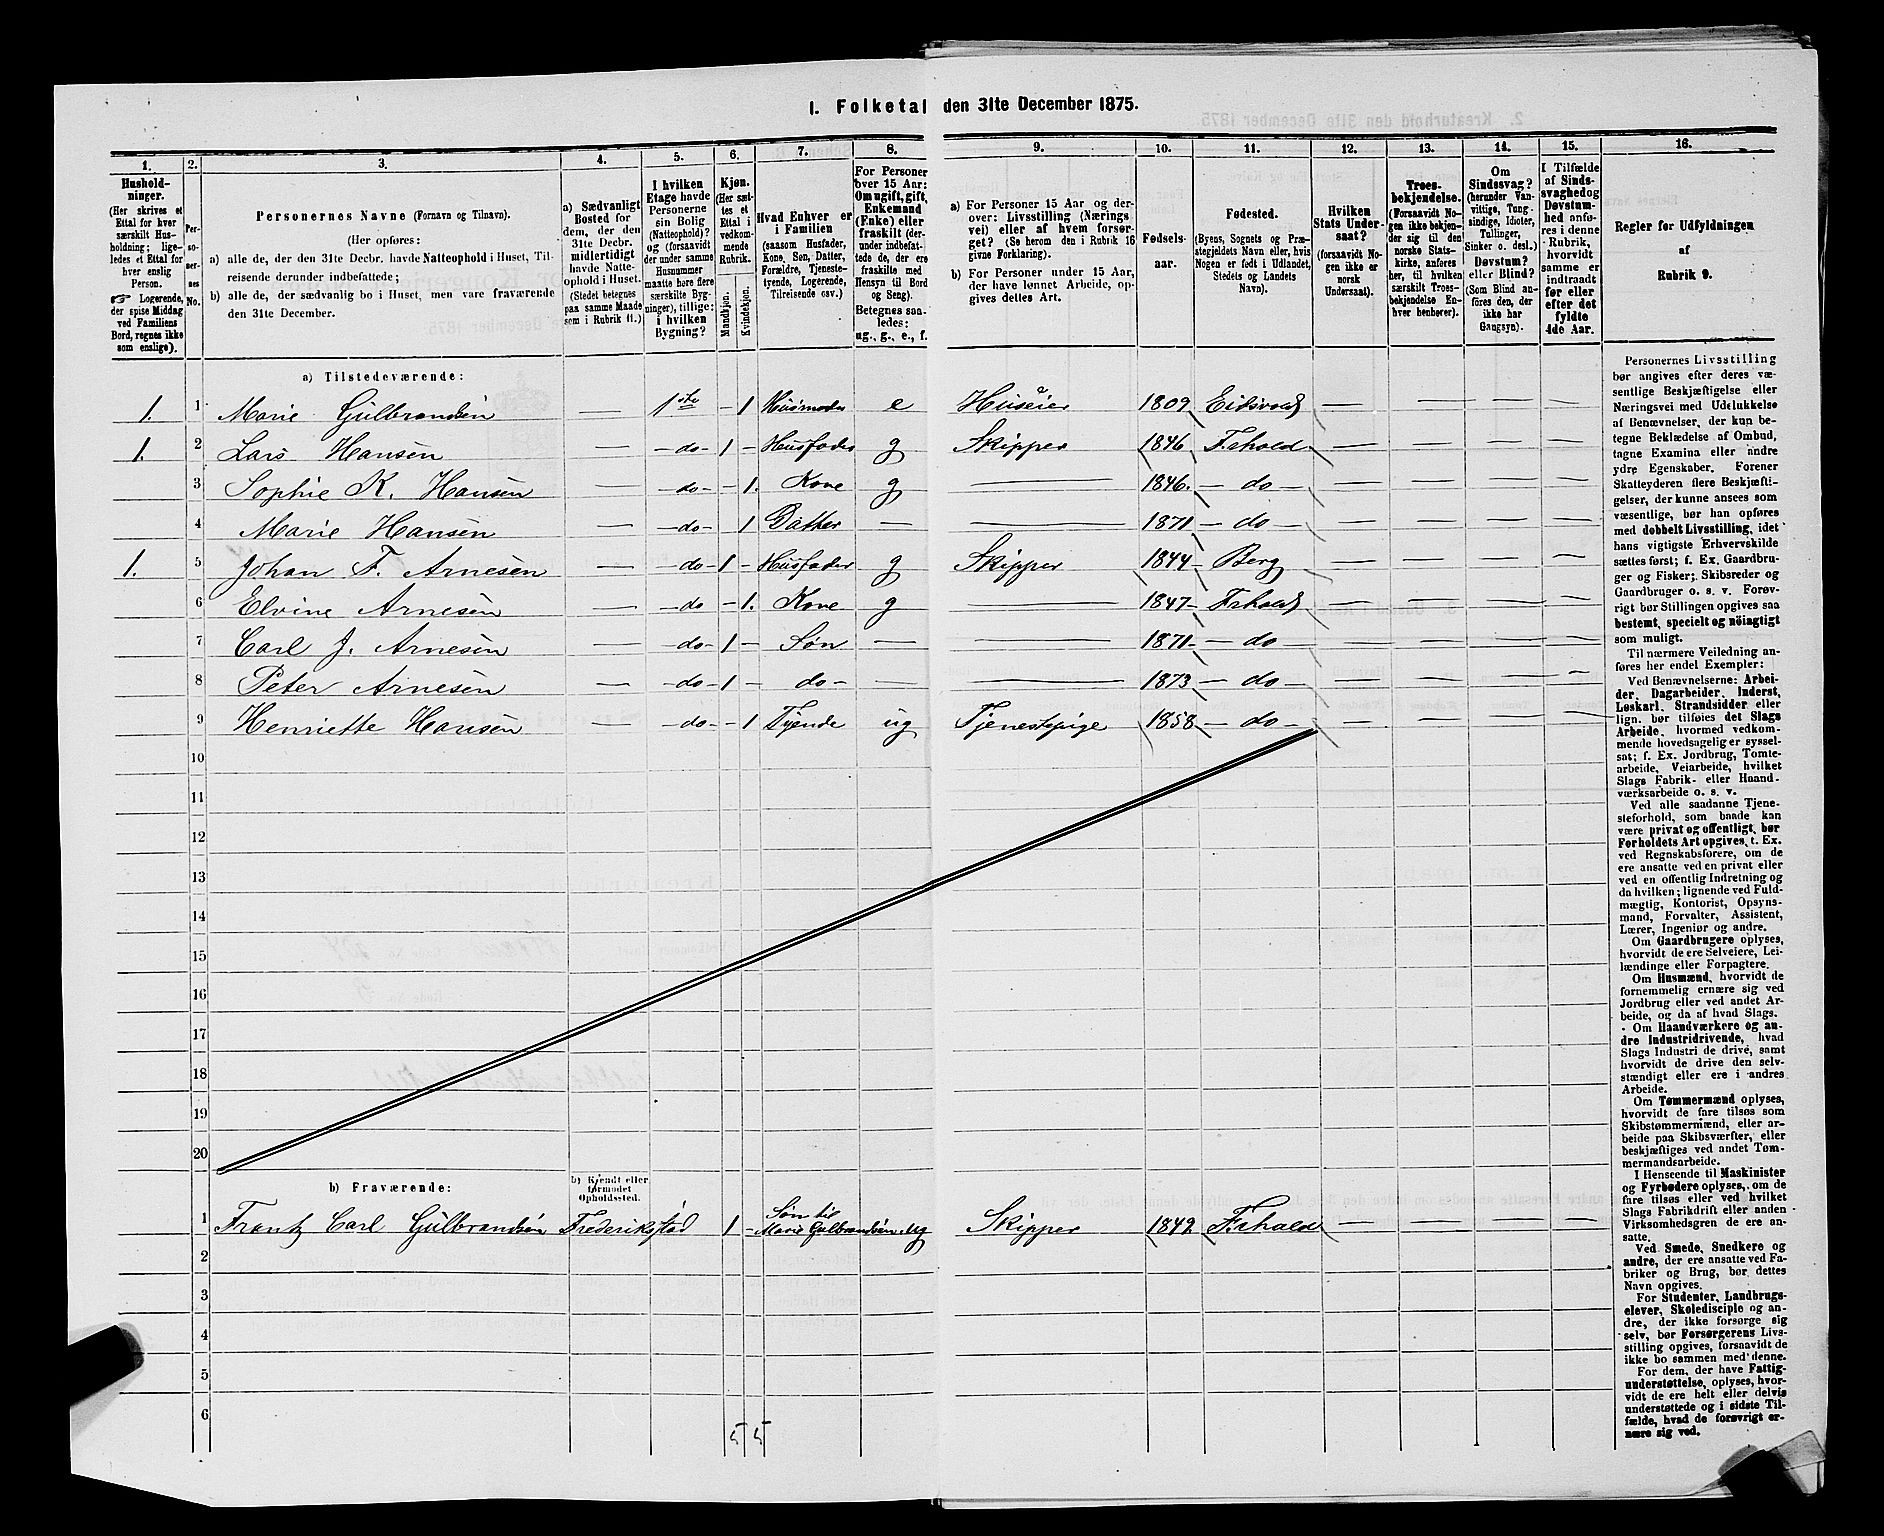 1. Folketal den 31te December 1875.
1. 2. 3. 4. 5. 6. 7. 8. 9. 10. 11. 12. 13. 14. 15. 16.
Hushold-
ninger.
(Her skrives et
Ettal for hver
særskilt Hus-
holdning; lige-
ledes et Ettal for
hver enslig
Person.
☞ Logerende,
der spise Middag
ved Familiens
Bord, regnes ikke
som enslige).
Per-
so-
ner-
nes
No.
Personernes Navne (Fornavn og Tilnavn).
(Her opføres:
a) alle de, der den 31te Decbr. havde Natteophold i Huset, Til-
reisende derunder indbefattede;
b) alle de, der sædvanlig bo i Huset, men vare fraværende
den 31te December.
a) Sædvanligt
Bosted for
dem, der den
31te Decbr.
midlertidigt
havde Natte-
ophold i Huset.
(Stedet betegnes
paa samme Maade
som i Rubrik 11.)
I hvilken
Etage havde
Personerne
sin Bolig
(Natteophold)?
og (forsaavidt
der under samme
Husnummer
maatte høre flere
særskilte Byg-
ninger), tillige:
i hvilken
Bygning?
Kjøn.
(Her sæt-
tes et
Ettal i
vedkom-
mende
Rubrik.
Mandkjøn.
Kvindekjøn.
Hvad Enhver er
i Familien
(saasom Husfader,
Kone, Søn, Datter,
Forældre, Tjeneste-
tyende, Logerende,
Tilreisende osv.)
For Personer
over 15 Aar:
Om ugift, gift,
Enkemand
(Enke) eller
fraskilt (der-
under indbefat-
tede de, der ere
fraskilte med
Hensyn til Bord
og Seng).
Betegnes saa-
ledes:
ug., g., e., f.
a) For Personer 15 Aar og der-
over: Livsstilling (Nærings
vei) eller af hvem forsør-
get? (Se herom den i Rubrik 16
givne Forklaring).
b) For Personer under 15 Aar,
der have lønnet Arbeide, op-
gives dettes Art.
Fødsels-
aar.
Fødested.
(Byens, Sognets og Præ-
stegjeldets Navn eller, hvis
Nogen er født i Udlandet,
Stedets og Landets
Navn).
Hvilken
Stats Under-
saat?
(forsaavidt No-
gen ikke er
norsk
Undersaat).
Troes-
bekjendelse.
(Forsaavidt No-
gen ikke bekjen-
der sig til den
norske Stats-
kirke, anføres
her, til hvilken
særskilt Troes-
bekjendelse En-
hver henhører).
Om
Sindssvag?
(herunder Van-
vittige, Tung-
sindige, Idioter,
Tullinger,
Sinker o. desl.)
Døvstum?
eller Blind?
(Som Blind an-
føres den, der
ikke har
Gangsyn).
I Tilfælde
af Sinds-
svaghed og
Døvstum-
hed anfø-
res i denne
Rubrik,
hvorvidt
samme er
indtraadt
før eller
efter det
fyldte
4de Aar.
Regler for Udfyldningen
af
Rubrik 9.
a) Tilstedeværende:
1. 1 Marie Gulbrandsen — 1ste — 1 Husmoder e Huseier 1809 Eidsvold — — — —
1. 2 Lars Hansen — do 1 — Husfader g Skipper 1846 Frhald — — — —
3 Sophie K. Hansen — do 1. Kone g — 1846. do — — — —
4 Marie Hansen — do 1 Datter — — 1871 do — — — —
1. 5 Johan F. Arnesen — do 1 — Husfader g Skipper 1844 Berg — — — —
6 Elvine Arnesen — do 1. Kone g — 1847 Frhald — — — —
7 Carl J. Arnesen — do 1 — Søn — — 1871 do — — — —
8 Peter Arnesen — do 1 — do — — 1873 do — — — —
9 Henriette Hansen — do 1 Tyende ug Tjenestepige 1858 do — — — —
10
11
12
13
14
15
16
17
18
19
20
b) Fraværende:
b) Kjendt eller
formodet
Opholdssted.
1 Frantz Carl Gulbrandsen Frederikstad 1 — Søn til
Marie Gulbrandsen. ug Skipper 1849 Frhald — — — —
2
3
4
5
6
5 5
Personernes Livsstilling
bør angives efter deres væ-
sentlige Beskjæftigelse eller
Næringsvei med Udelukkelse
af Benævnelser, der kun be-
tegne Beklædelse af Ombud,
tagne Examina eller andre
ydre Egenskaber. Forener
Skatteyderen flere Beskjæfti-
gelser, der kunne ansees som
væsentlige, bør han opføres
med dobbelt Livsstilling, idet
hans vigtigste Erhvervskilde
sættes først; f. Ex. Gaardbru-
ger og Fisker; Skibsreder og
Gaardbruger o. s. v. Forøv-
rigt bør Stillingen opgives saa
bestemt, specielt og nöiagtigt
som muligt.
Til nærmere Veiledning an-
føres her endel Exempler:
Ved Benævnelserne: Arbei-
der, Dagarbeider, Inderst,
Løskarl, Strandsidder eller
lign. bør tilføies det Slags
Arbeide, hvormed vedkom-
mende hovedsagelig er syssel-
sat; f. Ex. Jordbrug, Tomte-
arbeide, Veiarbeide, hvilket
Slags Fabrik- eller Haand-
værksarbeide o. s. v.
Ved alle saadanne Tjene-
steforhold, som baade kan
være privat og offentligt, bør
Forholdets Art opgives, t. Ex.
ved Regnskabsførere, om de
ere ansatte ved en privat eller
ved en offentlig Indretning og
da hvilken; lignende ved Fuld-
mægtig, Kontorist, Opsyns-
mand, Forvalter, Assistent,
Lærer, Ingeniør og andre.
Om Gaardbrugere oplyses,
hvorvidt de ere Selveiere, Lei-
lændinge eller Forpagtere.
Om Husmænd, hvorvidt de
fornemmelig ernære sig ved
Jordbrug eller ved andet Ar-
beide, og da af hvad Slags.
Om Haandværkere og an-
dre Industridrivende, hvad
Slags Industri de drive, samt
hvorvidt de drive den selv-
stændigt eller ere i andres
Arbeide.
Om Tømmermænd oplyses,
hvorvidt de fare tilsøs som
Skibstømmermænd, eller ar-
beide paa Skibsværfter, eller
beskjæftiges ved andet Tøm-
mermandsarbeide.
I Henseende til Maskinister
og Fyrbødere oplyses, om de
fare tilsøs eller ved hvilket
Slags Fabrikdrift eller anden
Virksomhedsgren de ere an-
satte.
Ved Smede, Snedkere og
andre, der ere ansatte ved Fa-
briker og Brug, bør dettes
Navn opgives.
For Studenter, Landbrugs-
elever, Skoledisciple og an-
dre, der ikke forsørge sig
selv, bør Forsørgerens Livs-
stilling opgives, forsaavidt de
ikke bo sammen med denne.
For dem, der have Fattig-
understøttelse, oplyses, hvor-
vidt de ere helt eller delvis
understøttede og i sidste Til-
fælde, hvad de forøvrigt er-
nære sig ved.